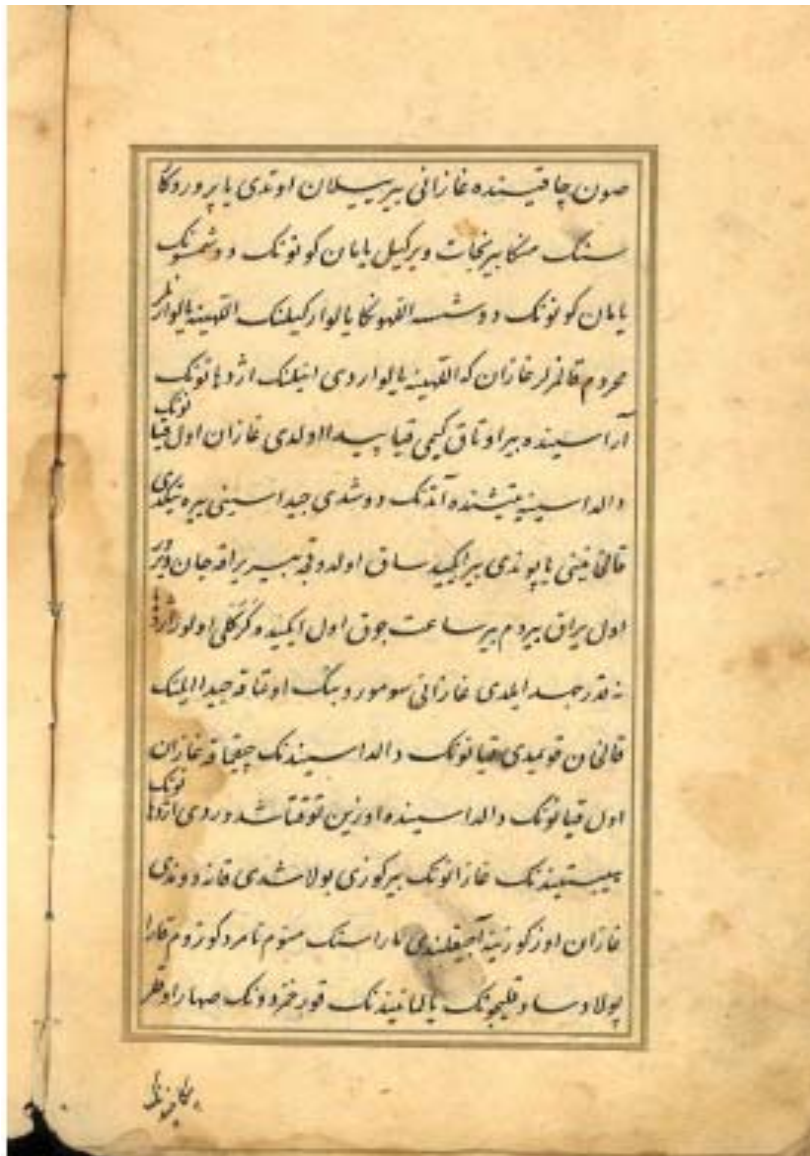 صون چاقینده غازانی بیر ییلان اوتدی یا پروردکا
سنک منکا بیر نجات ویرکیل یامان کونونک دوشمسونک
یامان کونونک دوشسه اللهونکا یالوارکیلنک اللهینه یالوارنلر
محروم قالمزلر غازان که اللهینه یالواردی اینلنک اژدهانونک
آراسینده بیر اوتاق کیمی قیا پیدا اولدی غازان اول قیانونک
دالداسینه یتیشنده آتدنک دوشدی جیداسینی ییره تیکدی
قالخانینی یاپوندی بیر ایکید ساق اولدوقجه بیر یراقه جان ویرور
اول یراق بیر دم بیر ساعت جوق اول ایکیده کرکلی اولور اژدها
نه قدر جهد ایلدی غازانی سوموروبنک اوتماقه جیدا ایلنک
قالخان قویمیدی قیانونک دالداسیندنک چیقماقه غازان
اول قیانونک دالداسینده اوزین توقتاشدوردی اژدهانونک
هیبتیندنک غازانونک بیر کوزی بولاشدی قانه دوندی
غازان اوز کوزینه آجیقلندی نامرد کوزوم قارا
پولاد ساو قلیجونک یالمانیندنک قورخمزدونک